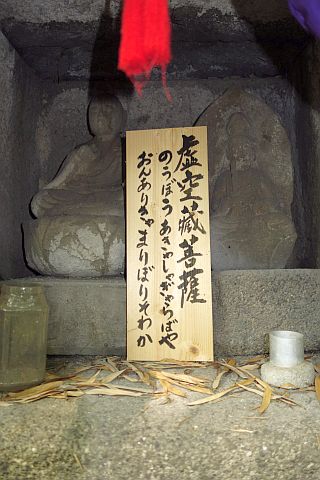 虚空蔵菩薩
のうぼう あきゃしゃぎゃらばや
おんありきゃ まりぼりそわか